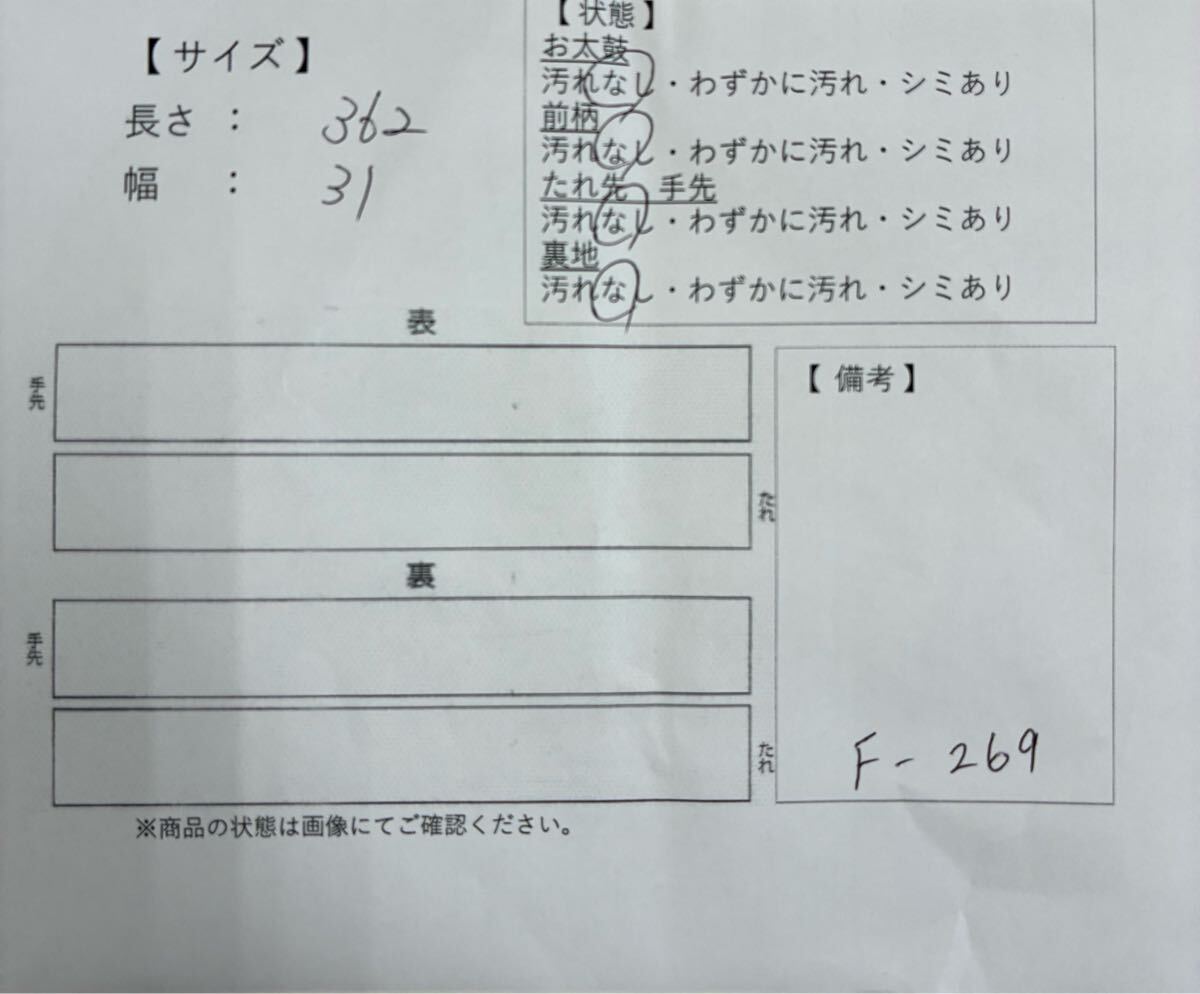 【サイズ】
長さ： 362
幅　： 31
【状態】
お太鼓
汚れなし・わずかに汚れ・シミあり
前柄
汚れなし・わずかに汚れ・シミあり
たれ先　手先
汚れなし・わずかに汚れ・シミあり
裏地
汚れなし・わずかに汚れ・シミあり
表
手先
たれ
裏
手先
たれ
【備考】
F-269
※商品の状態は画像にてご確認ください。